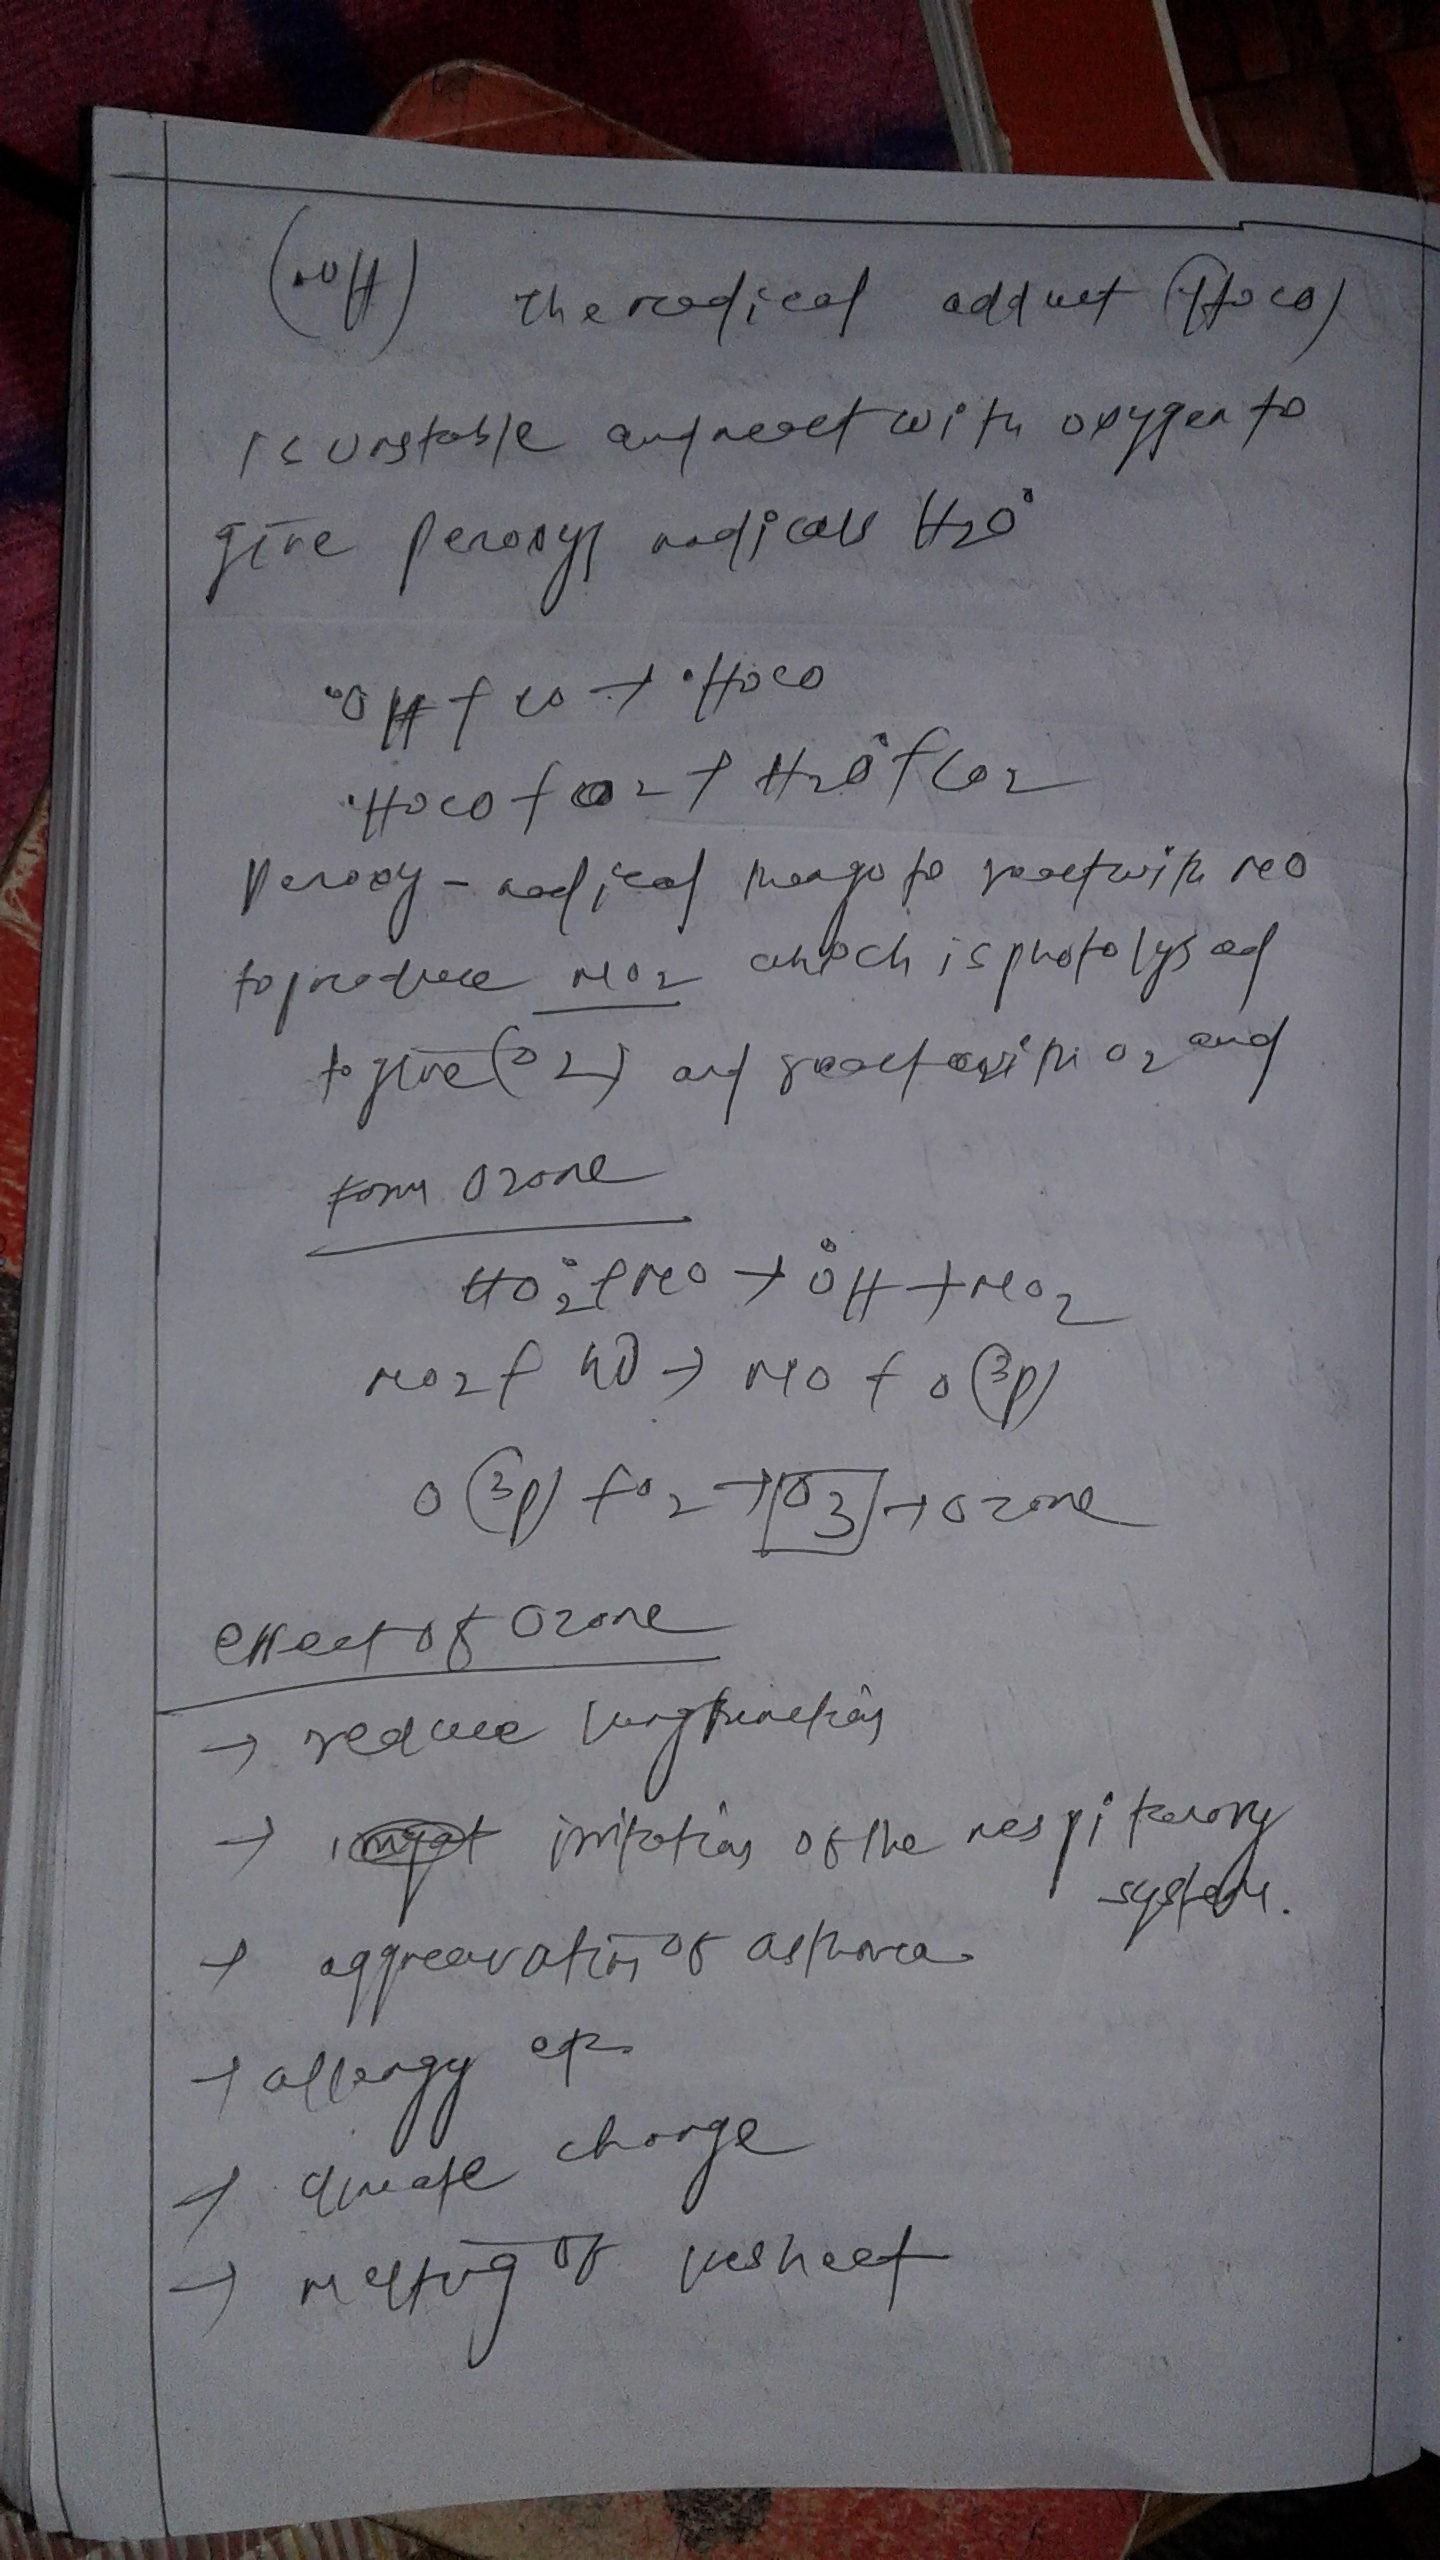 (•OH) The radical adduct (•Hoco)
is unstable and react with oxygen to
give peroxy radicals H2O•
•OH + co → •Hoco
•Hoco + O2 → H2O• + CO2
peroxy - radical then go to react with NO
to produce NO2 which is photolysed
to give (O2) and react with O2 and
form Ozone
HO2• + NO → •OH + NO2
NO2 + hν → NO + O(3p)
O(3p) + O2 → O3 → Ozone
effect of Ozone
→ reduce lung function
→ irritation of the respiterory
system.
→ aggreavation of asthma
→ allergy etc.
→ climate change
→ melting of icesheet